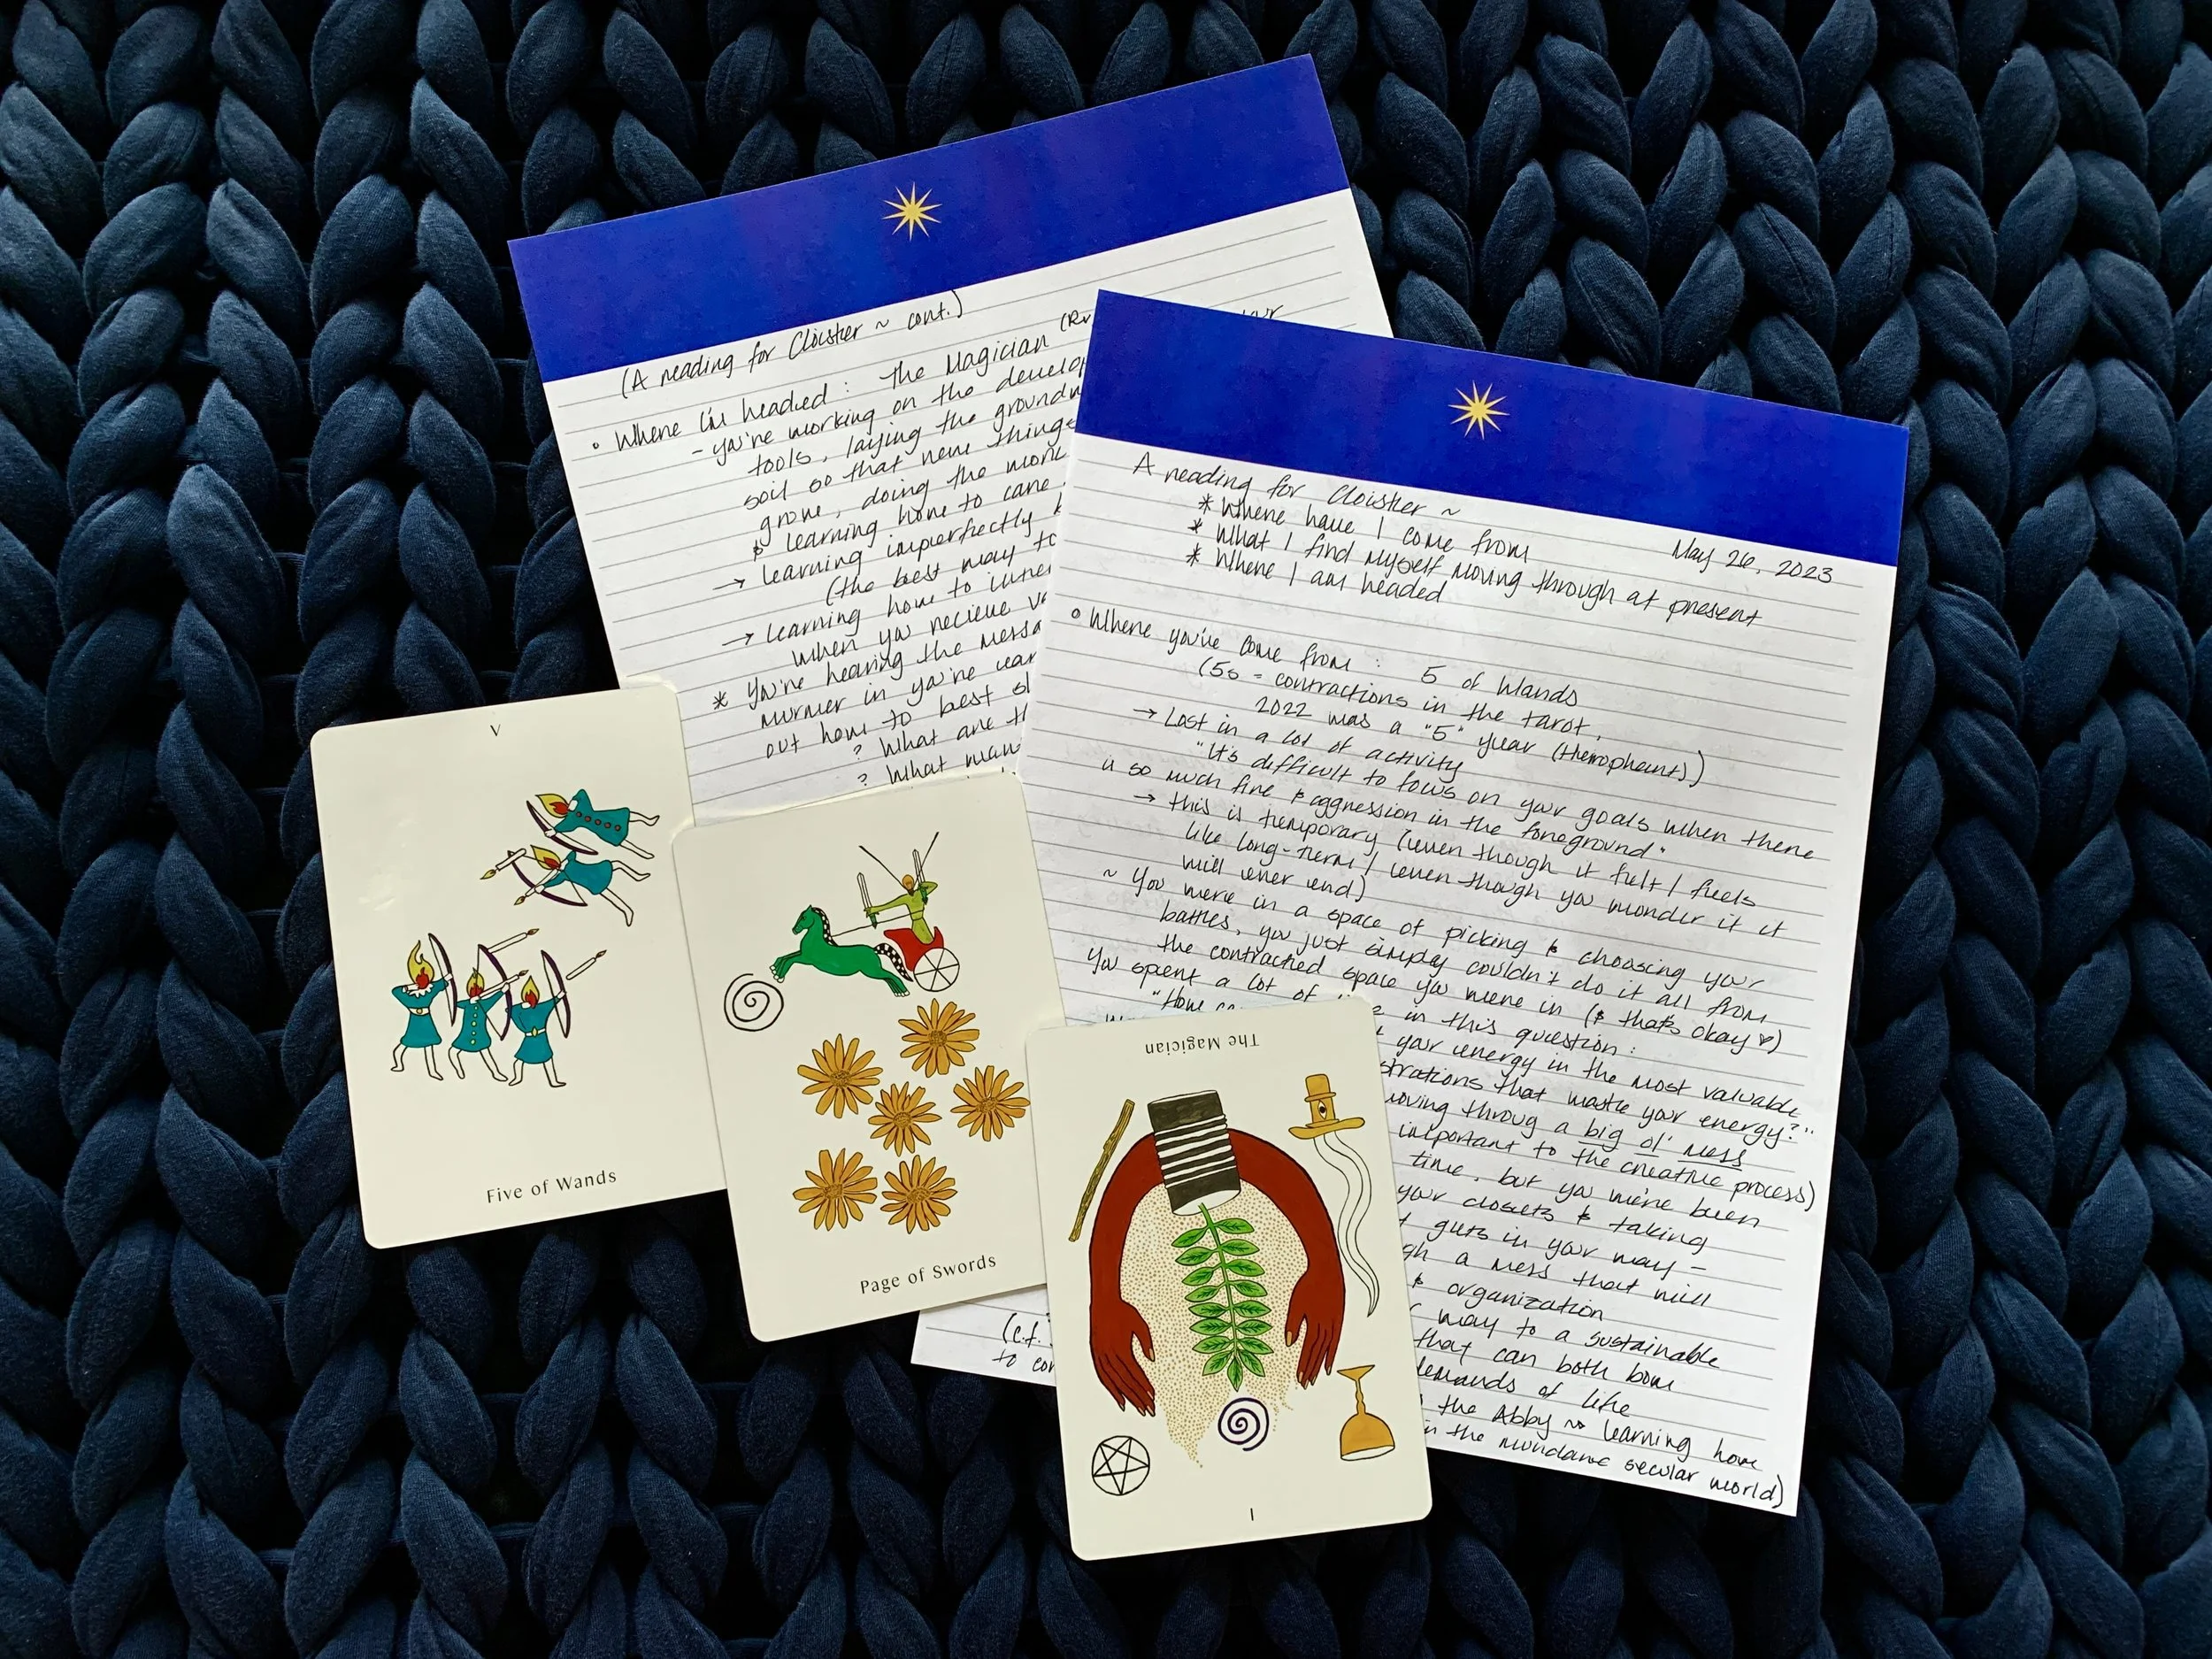 (A reading for Cloister ~ cont.)
° Where I'm headed : the Magician (Rv
- you're working on the develop
tools, laying the groundw
soil so that new things
grow, doing the work
& learning how to care
→ learning imperfectly
(the best way to
→ learning how to
when you recieve
* You're hearing the messa
murmer in you're
out how to best sl
? What are th
? What
(c.f.
to con
A reading for Cloister ~
May 26, 2023
* Where have I come from
* What I find myself moving through at present
* Where I am headed
° Where you've come from : 5 of Wands
(5s = contractions in the tarot,
2022 was a "5" year (Hierophant))
→ Lost in a lot of activity
"It's difficult to focus on your goals when there
is so much fire & aggression in the foreground"
→ this is temporary (even though it felt / feels
like long-term / even though you wonder if it
will ever end)
~ You were in a space of picking & choosing your
battles, you just simply couldn't do it all from
the contracted space you were in (& that's okay ♥)
You spent a lot of in this question :
"How
your energy in the most valuable
strations that waste your energy?"
moving throug a big ol' mess
important to the creative process)
time, but you we're been
your closets & taking
guts in your way -
gh a mess that will
& organization
way to a sustainable
that can both bow
demands of life
the Abby ~ learning how
in the mundane secular world)
V
Five of Wands
Page of Swords
The Magician
I